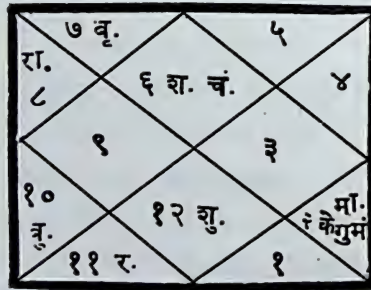 ७ वृ. ५
रा.
८
६ श. चं.
४
९ ३
१०
त्रु.
१२ शु.
मा.
के गुमं
११ र. १